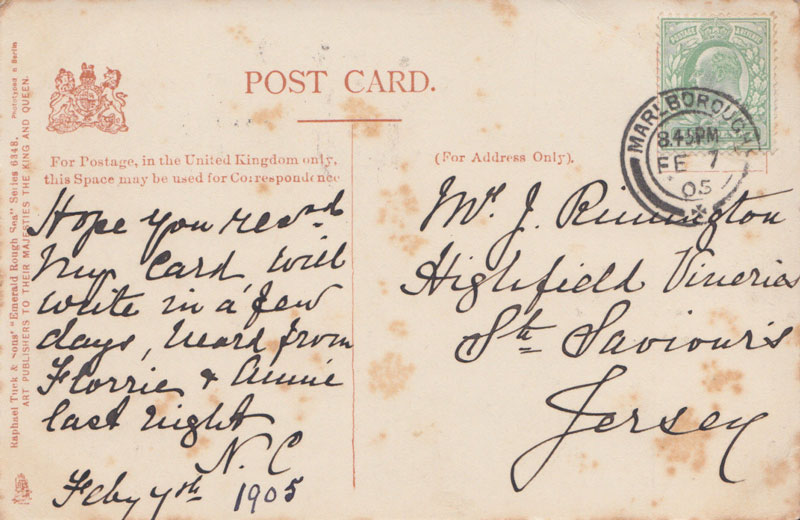 POST CARD.
For Postage, in the United Kingdom only,
this Space may be used for Correspondence
(For Address Only).
MARLBOROUGH
8.45PM
FE 7
05
Hope you recvd
my card will
write in a few
days, heard from
Florrie & Annie
last night
N. C
Feby 7th 1905
Mr J. Rimington
Highfield Vineries
St Saviour's
Jersey
Raphael Tuck & Sons' "Emerald Rough Sea" Series 6348.
ART PUBLISHERS TO THEIR MAJESTIES THE KING AND QUEEN.